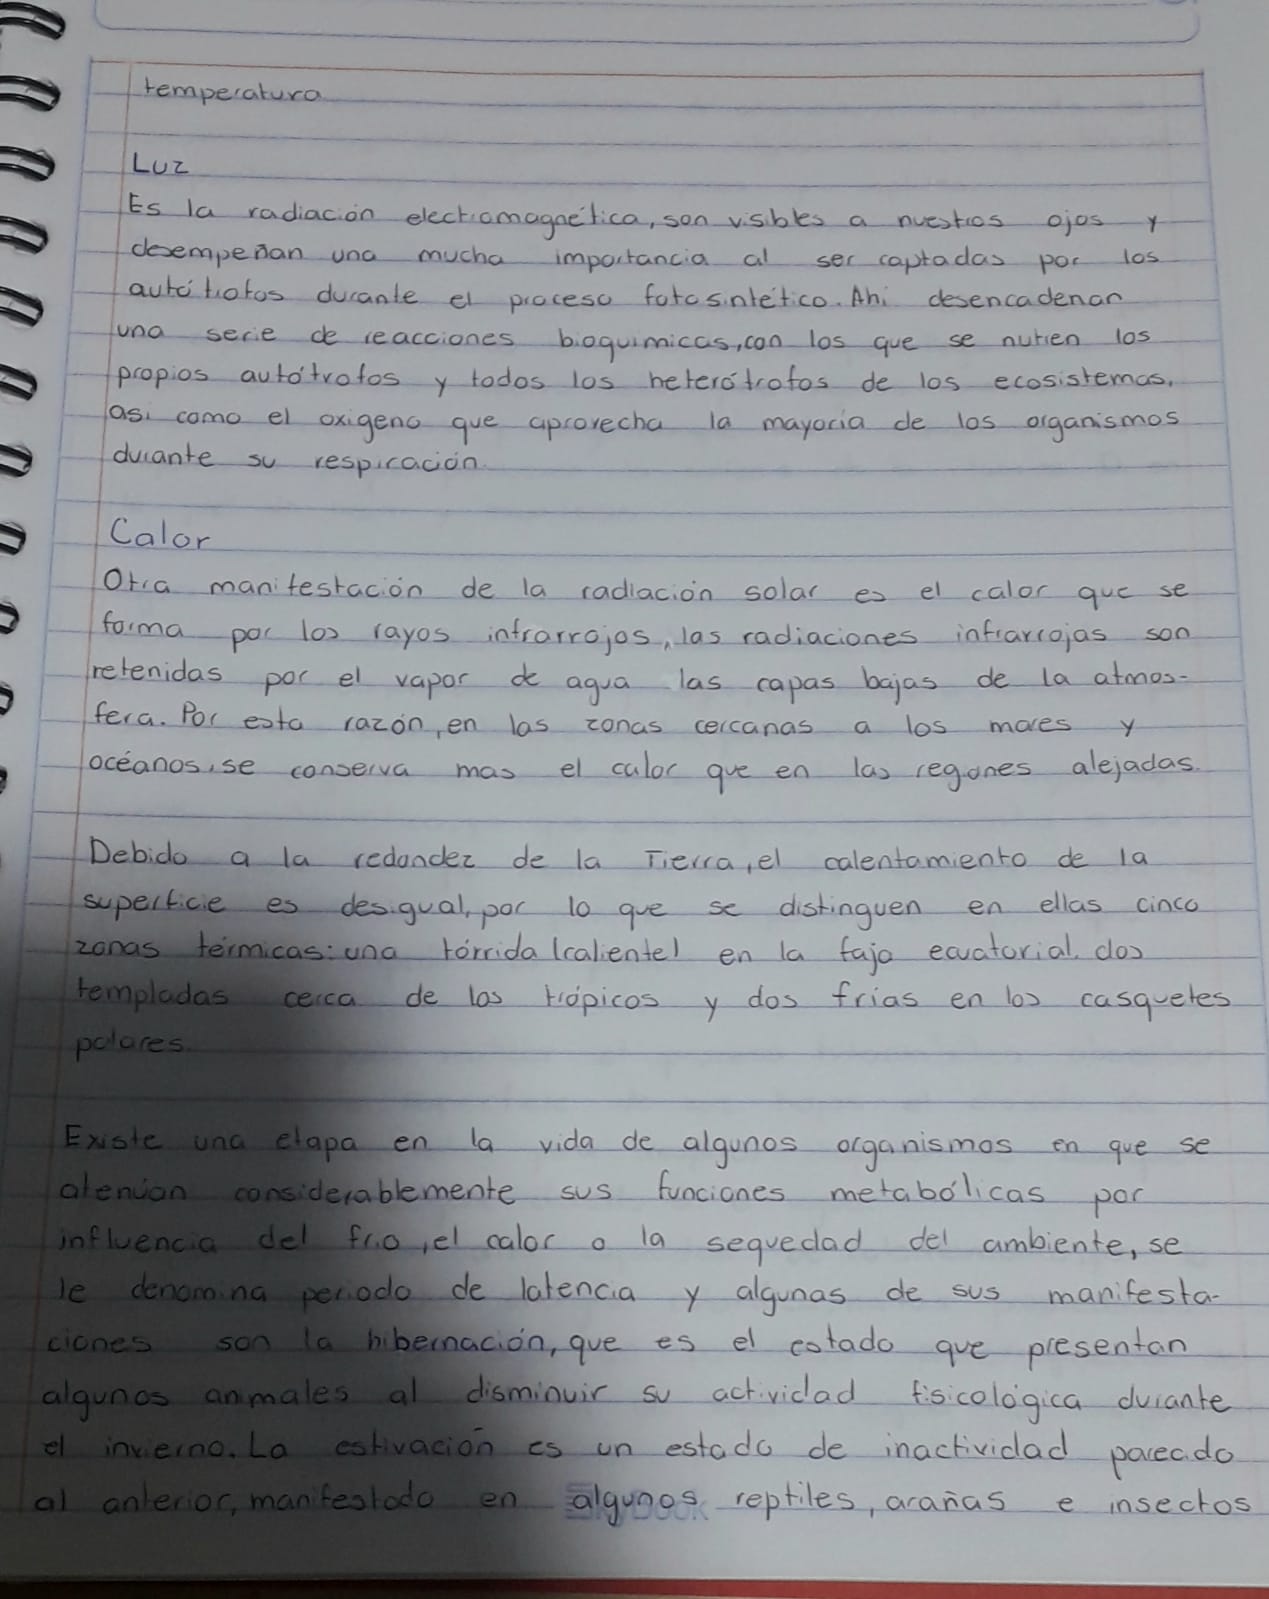 temperatura
Luz
Es la radiación electromagnética, son visibles a nuestros ojos y
desempeñan una mucha importancia al ser captadas por los
autótrofos durante el proceso fotosintético. Ahi desencadenan
una serie de reacciones bioquimicas, con los que se nutren los
propios autótrofos y todos los heterótrofos de los ecosistemas,
asi como el oxigeno que aprovecha la mayoria de los organismos
durante su respiración.
Calor
Otra manifestación de la radiación solar es el calor que se
forma por los rayos infrarrojos, las radiaciones infrarrojas son
retenidas por el vapor de agua las capas bajas de la atmos-
fera. Por esta razón, en las zonas cercanas a los mares y
océanos, se conserva mas el calor que en las regiones alejadas.
Debido a la redondez de la Tierra, el calentamiento de la
superficie es desigual, por lo que se distinguen en ellas cinco
zonas térmicas: una tórrida (caliente) en la faja ecuatorial. dos
templadas cerca de los trópicos y dos frias en los casquetes
polares.
Existe una etapa en la vida de algunos organismos en que se
atenúan considerablemente sus funciones metabólicas por
influencia del frio, el calor o la sequedad del ambiente, se
le denomina periodo de latencia y algunas de sus manifesta-
ciones son la hibernación, que es el estado que presentan
algunos animales al disminuir su actividad fisicológica durante
el invierno. La estivación es un estado de inactividad parecido
al anterior, manifestado en algunos reptiles, arañas e insectos